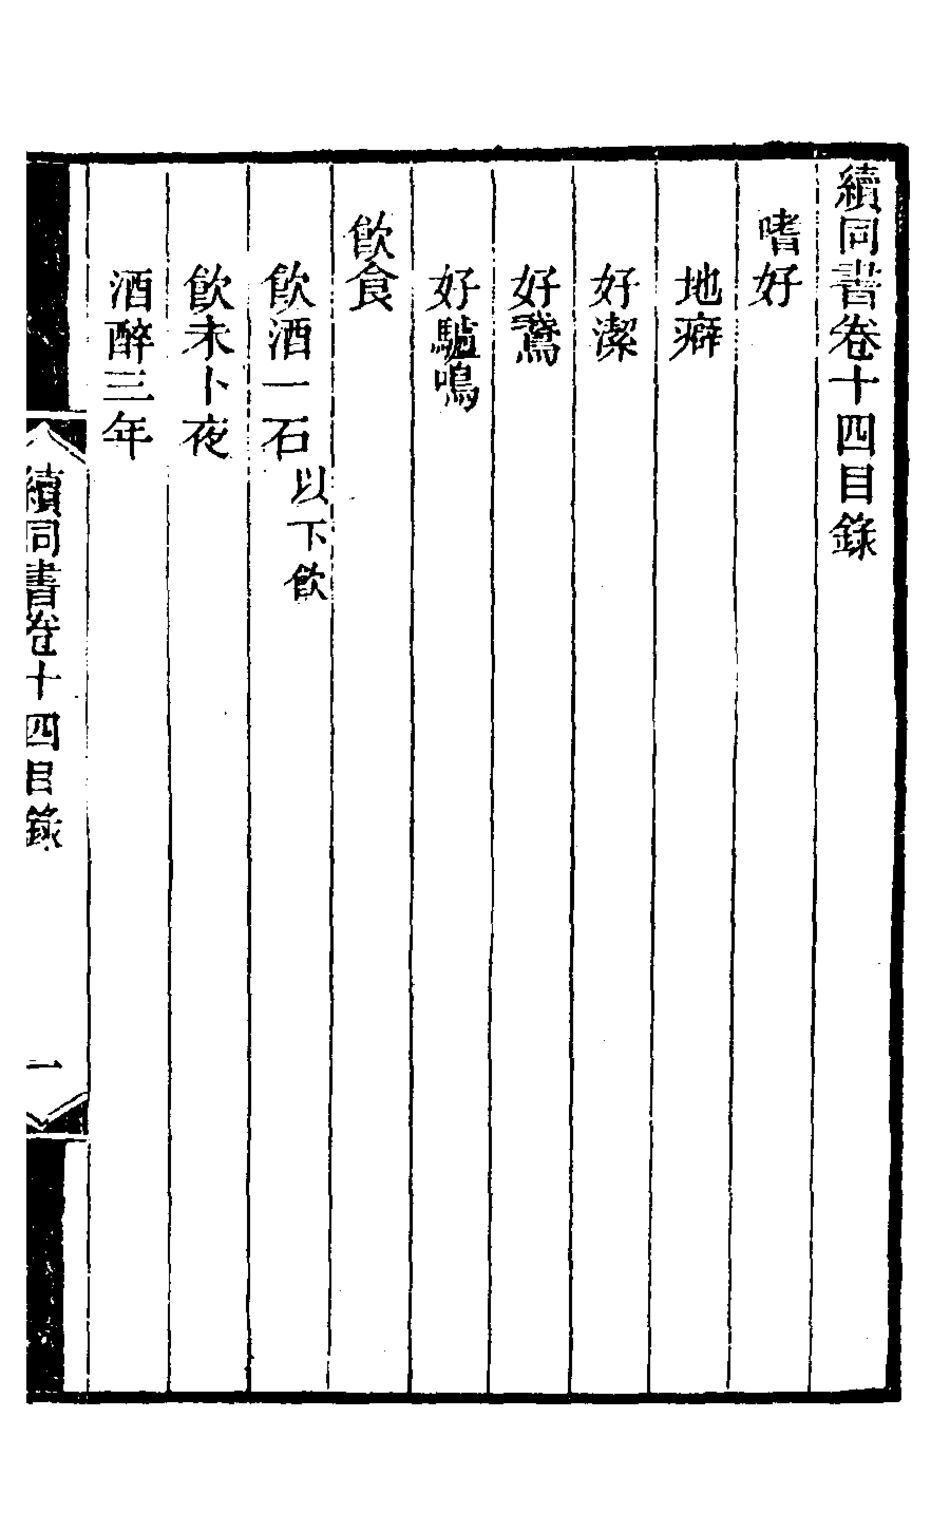 續同書卷十四目錄
嗜好
地癖
好潔
好鵞
好驢鳴
飲食
飲酒一石以下飲
飲未卜夜
酒醉三年
續同書卷十四目錄
一